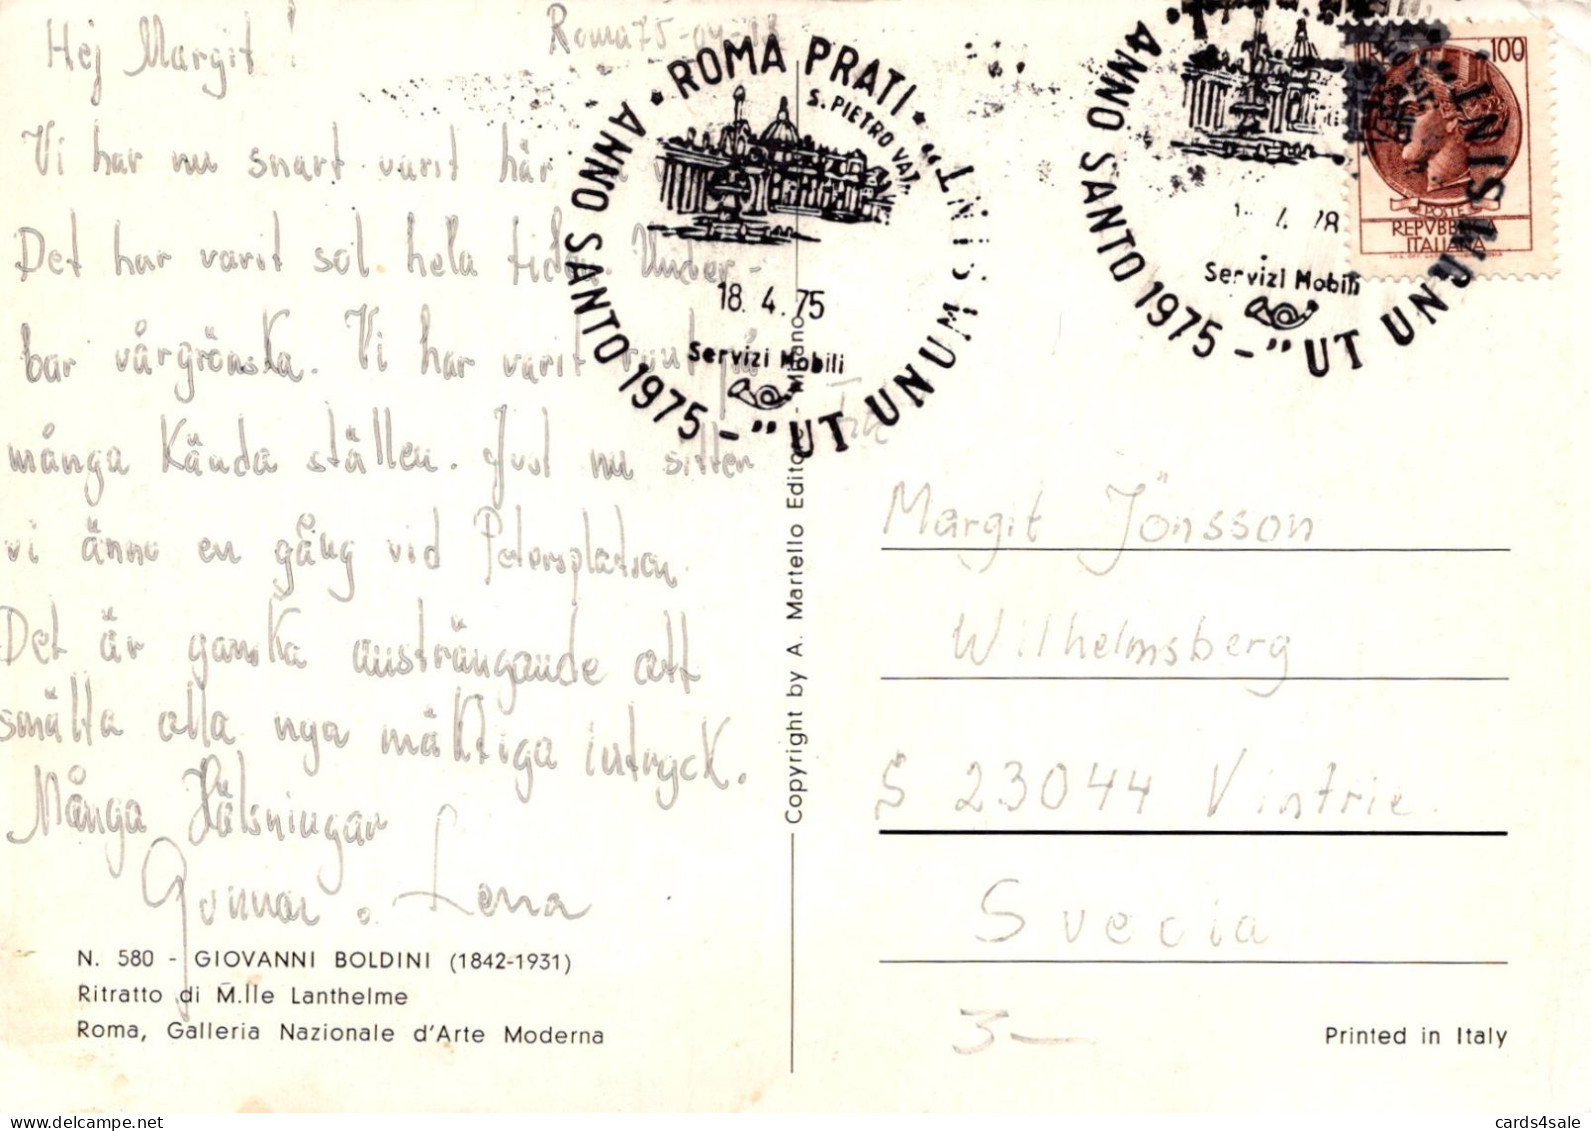 Hej Margit!
Roma 75-04-18
Vi har nu snart varit här
Det har varit sol hela tiden. Under-
bar vårgrönska. Vi har varit runt på
många kända ställen. Just nu sitter
vi ännu en gång vid Petersplatsen.
Det är ganska ansträngande att
smälta alla nya mäktiga intryck.
Många Hälsningar
Gunnar o. Lena
N. 580 - GIOVANNI BOLDINI (1842-1931)
Ritratto di M.lle Lanthelme
Roma, Galleria Nazionale d'Arte Moderna
Copyright by A. Martello Editore - Milano
ROMA PRATI
S. PIETRO VAT.
ANNO SANTO 1975 - "UT UNUM SINT"
18.4.75
Servizi Mobili
ANNO SANTO 1975 - "UT UNUM SINT"
Servizi Mobili
LIRE 100
POSTE
REPVBBLICA
ITALIANA
Margit Jönsson
Wilhelmsberg
S 23044 Vintrie
Svecia
3-
Printed in Italy
cards4sale